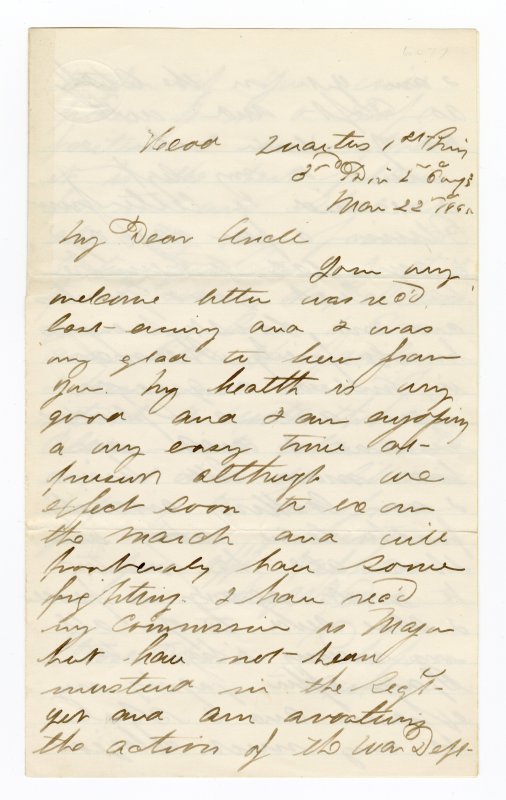 Head Quarters 1st Brig
3rd Div 2nd Corps
Mar 22nd 1865
My Dear Uncle
Your very
welcome letter was recd
last evening and I was
very glad to hear from
you. My health is very
good and I am enjoying
a very easy time at
present although we
expect soon to be on
the march and will
probably have some
fighting. I have rec'd
my Commission as Major
but have not been
mustered in the Regt
yet and am awaiting
the action of the War Dept